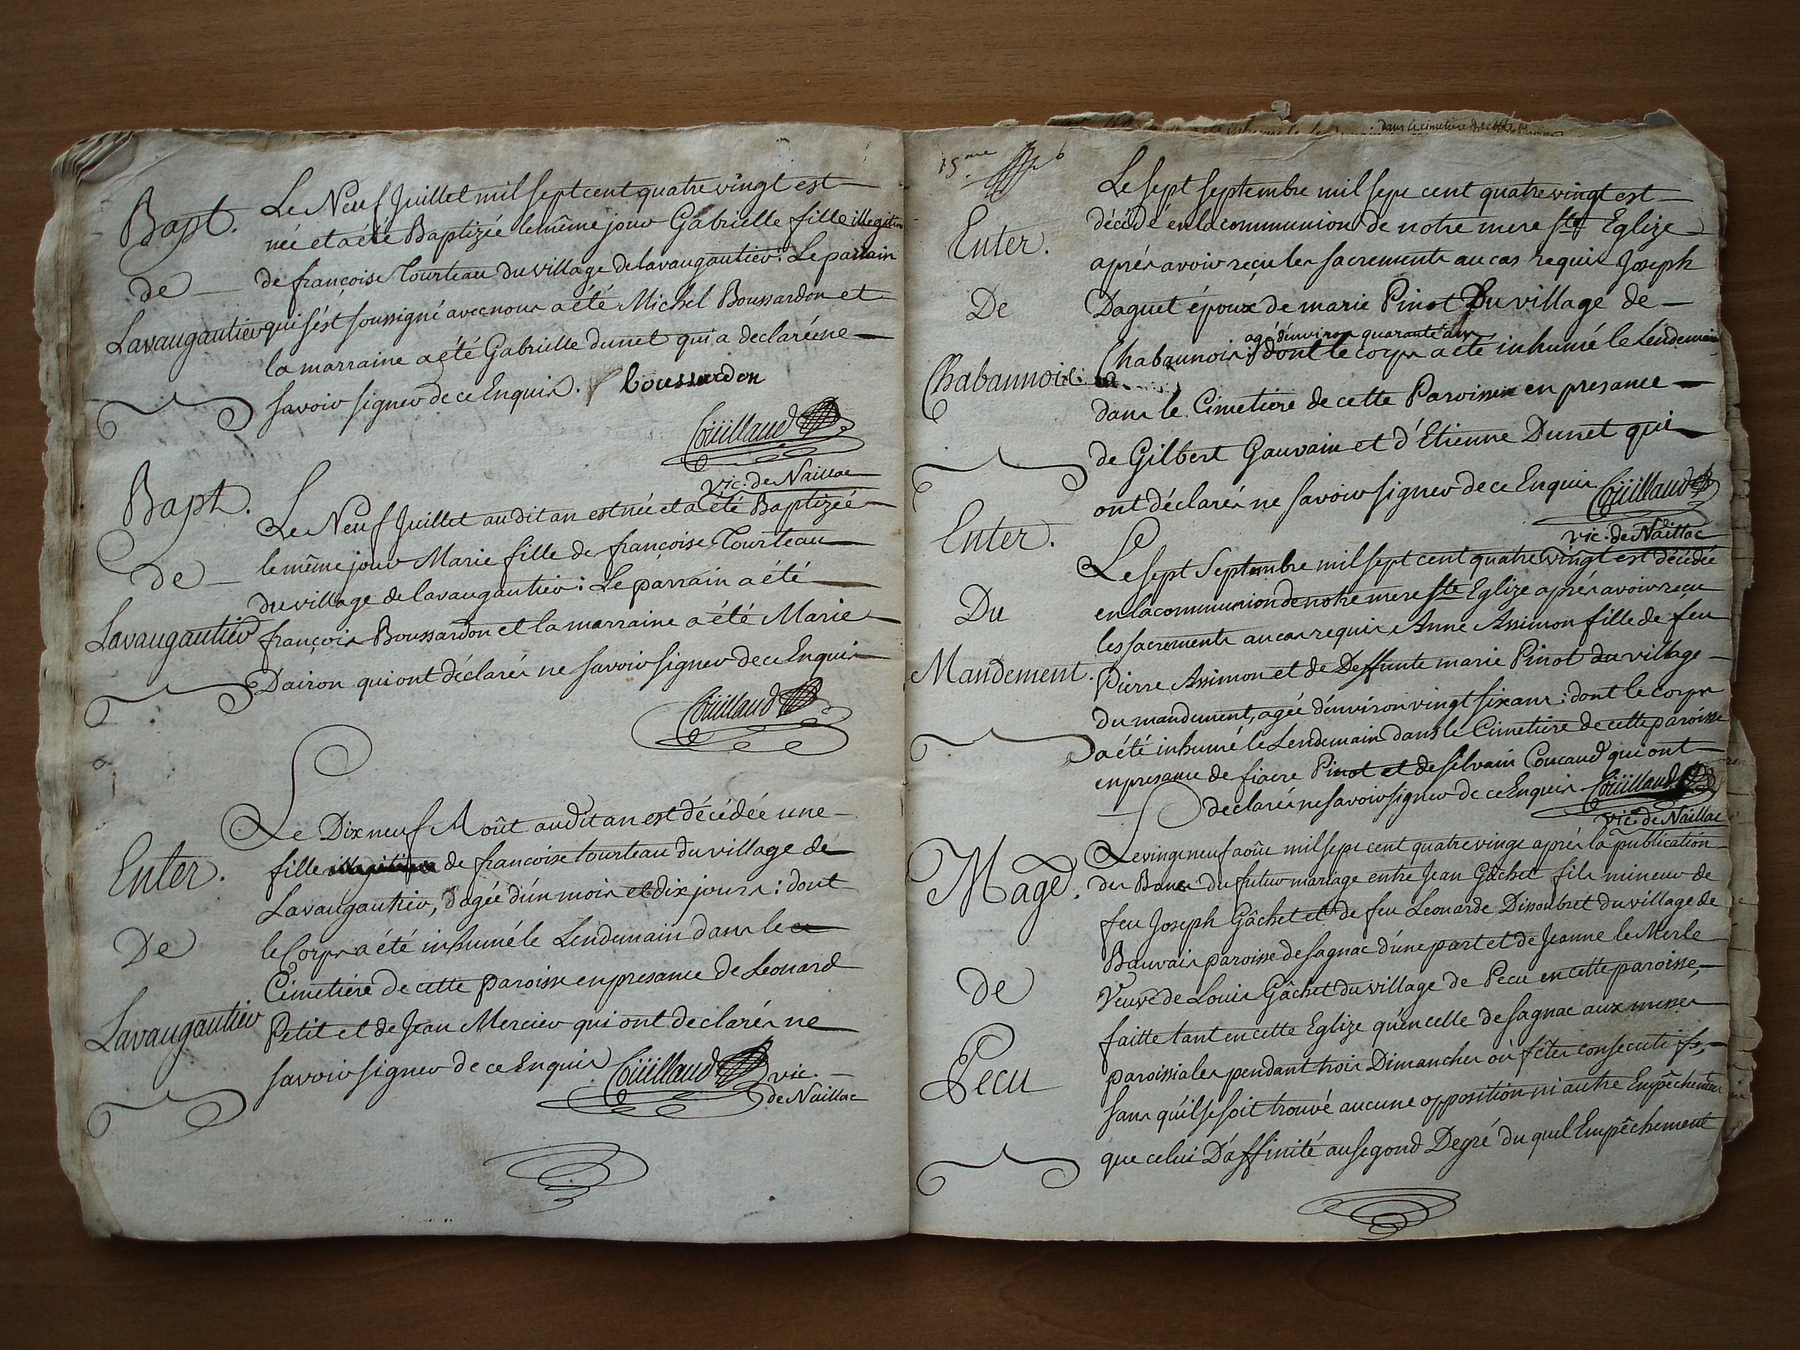 Bapt.
de
Lavaugautier
Le Neuf Juillet mil sept cent quatre vingt est
née et a été Baptizée le même jour Gabrielle fille illegitime
de françoise Tourteau du village de lavaugautier : Le parrain
qui s'est soussigné avec nous a été Michel Boussardon et
la marraine a été Gabrielle dunet qui a declaré ne
savoir signer de ce Enquis. boussardon
Coüillaud
vic. de Naillac
Bapt.
de
Lavaugautier
Le Neuf Juillet audit an est née et a été Baptizée
le même jour Marie fille de françoise Tourteau
du village de lavaugautier : Le parrain a été
françois Boussardon et la marraine a été Marie
Dairon qui ont déclarés ne savoir signer de ce Enquis
Coüillaud
Enter.
De
Lavaugautier
Le Dix neuf Août audit an est décédée une
fille de francoise tourteau du village de
Lavaugautier, agée d'un mois et dix jours : dont
le Corps a été inhumé le Lendemain dans le
Cimetiere de cette paroisse en presance de Leonard
Petit et de Jean Mercier qui ont declarés ne
savoir signer de ce Enquis Coüillaud vic.
de Naillac
15.me
Enter.
De
Chabannois
Le sept septembre mil sept cent quatre vingt est
décédé en la communion de notre mere Ste Eglize
aprés avoir reçu les sacrements au cas requis Joseph
Daguet époux de marie Pinot Du village de
agé d'environ quarante ans
Chabannois : dont le corps a été inhumé le Lendemain
dans le Cimetiere de cette Paroisse en presance
de Gilbert Gauvain et d'Etienne Dunet qui
ont déclarés ne savoir signer de ce Enquis Coüillaud
vic. de Naillac
Enter.
Du
Mandement.
Le sept Septembre mil sept cent quatre vingt est décédée
en la communion de notre mere Ste Eglize aprés avoir reçu
les sacrements au cas requis Anne Assimon fille de feu
Pierre Assimon et de Deffunte marie Pinot du village
du mandement, agée d'environ vingt six ans : dont le corps
a été inhumé le Lendemain dans le Cimetiere de cette paroisse
en presance de fiacre Pinot et de silvain Coucaud qui ont
declarés ne savoir signer de ce Enquis Coüillaud
vic. de Naillac
Mage.
de
Pecu
Le vingt neuf août mil sept cent quatre vingt aprés la publication
des Bans du futur mariage entre Jean Gâchet fils mineur de
feu Joseph Gâchet et de feu Leonarde Dissoubret du village de
Bauvais paroisse de sagnac d'une part et de Jeanne le Merle
Veuve de Louis Gâchet du village de Pecu en cette paroisse,
faitte tant en cette Eglize qu'en celle de sagnac aux messes
paroissiales pendant trois Dimanches où fêtes consecutifs,
sans qu'il se soit trouvé aucune opposition ni autre Empêchement
que celui D'affinité au segond Degré du quel Empêchement